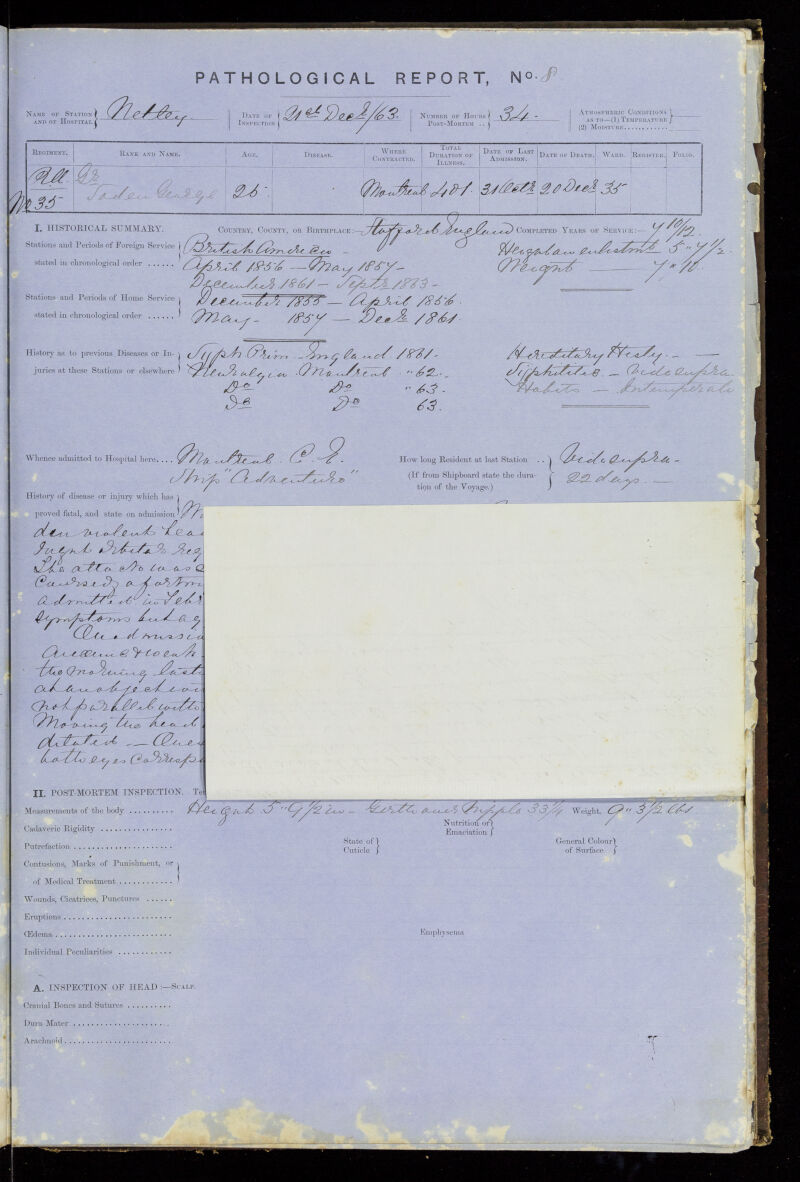 PATHOLOGICAL REPORT, No. 8
NAME OF STATION AND OF HOSPITAL Netley DATE OF INSPECTION 21st Decr/63. NUMBER OF HOURS POST-MORTEM .. 34. ATMOSPHERIC CONDITIONS AS TO—(1) TEMPERATURE (2) MOISTURE
REGIMENT. RANK AND NAME. AGE. DISEASE. WHERE CONTRACTED. TOTAL DURATION OF ILLNESS. DATE OF LAST ADMISSION. DATE OF DEATH. WARD. REGISTER. FOLIO.
RA Gr
No 35 George 25 Montreal 401. 31 Octr 20 Decr 35
I. HISTORICAL SUMMARY. COUNTRY, COUNTY, OR BIRTHPLACE:— Stafford England COMPLETED YEARS OF SERVICE:— 7 10/12
Stations and Periods of Foreign Service British America Height on enlistmt 5" 7 1/2
stated in chronological order ...... April 1856 — May 1857 — Weight —
December 1861 — Septr 1863 —
Stations and Periods of Home Service December 1855 — April 1856.
stated in chronological order ...... May — 1857 — Decr 1861
History as to previous Diseases or In- Syph Prim — England 1861. Hereditary Histy. —
juries at these Stations or elsewhere Neuralgia Montreal "62. Syphilitic — Vide supra
Do Do "63. Habits — Intemperate
Do Do 63.
Whence admitted to Hospital here.... Montreal C. E. How long Resident at last Station .. Vide supra —
Ship "Adventure" (If from Shipboard state the duration of the Voyage.) 22 days. —
History of disease or injury which has
proved fatal, and state on admission
den violent hea
right orbital reg
The attack was
admitted in Febr
symptoms but ag
On admissio
Anaemic & weak
the morning last
at an object
not parallel with
Moving the head
dilated —
both eyes corresp
II. POST-MORTEM INSPECTION.
Measurements of the body .......... Height 5" 9 1/2 in — Girth over Nipple 33 1/4 Weight. 9" 3 1/2 lbs
Cadaveric Rigidity Nutrition or Emaciation
Putrefaction State of Cuticle General Colour of Surface
Contusions, Marks of Punishment, or
of Medical Treatment
Wounds, Cicatrices, Punctures
Eruptions
Œdema Emphysema
Individual Peculiarities
A. INSPECTION OF HEAD :—SCALP.
Cranial Bones and Sutures
Dura Mater
Arachnoid